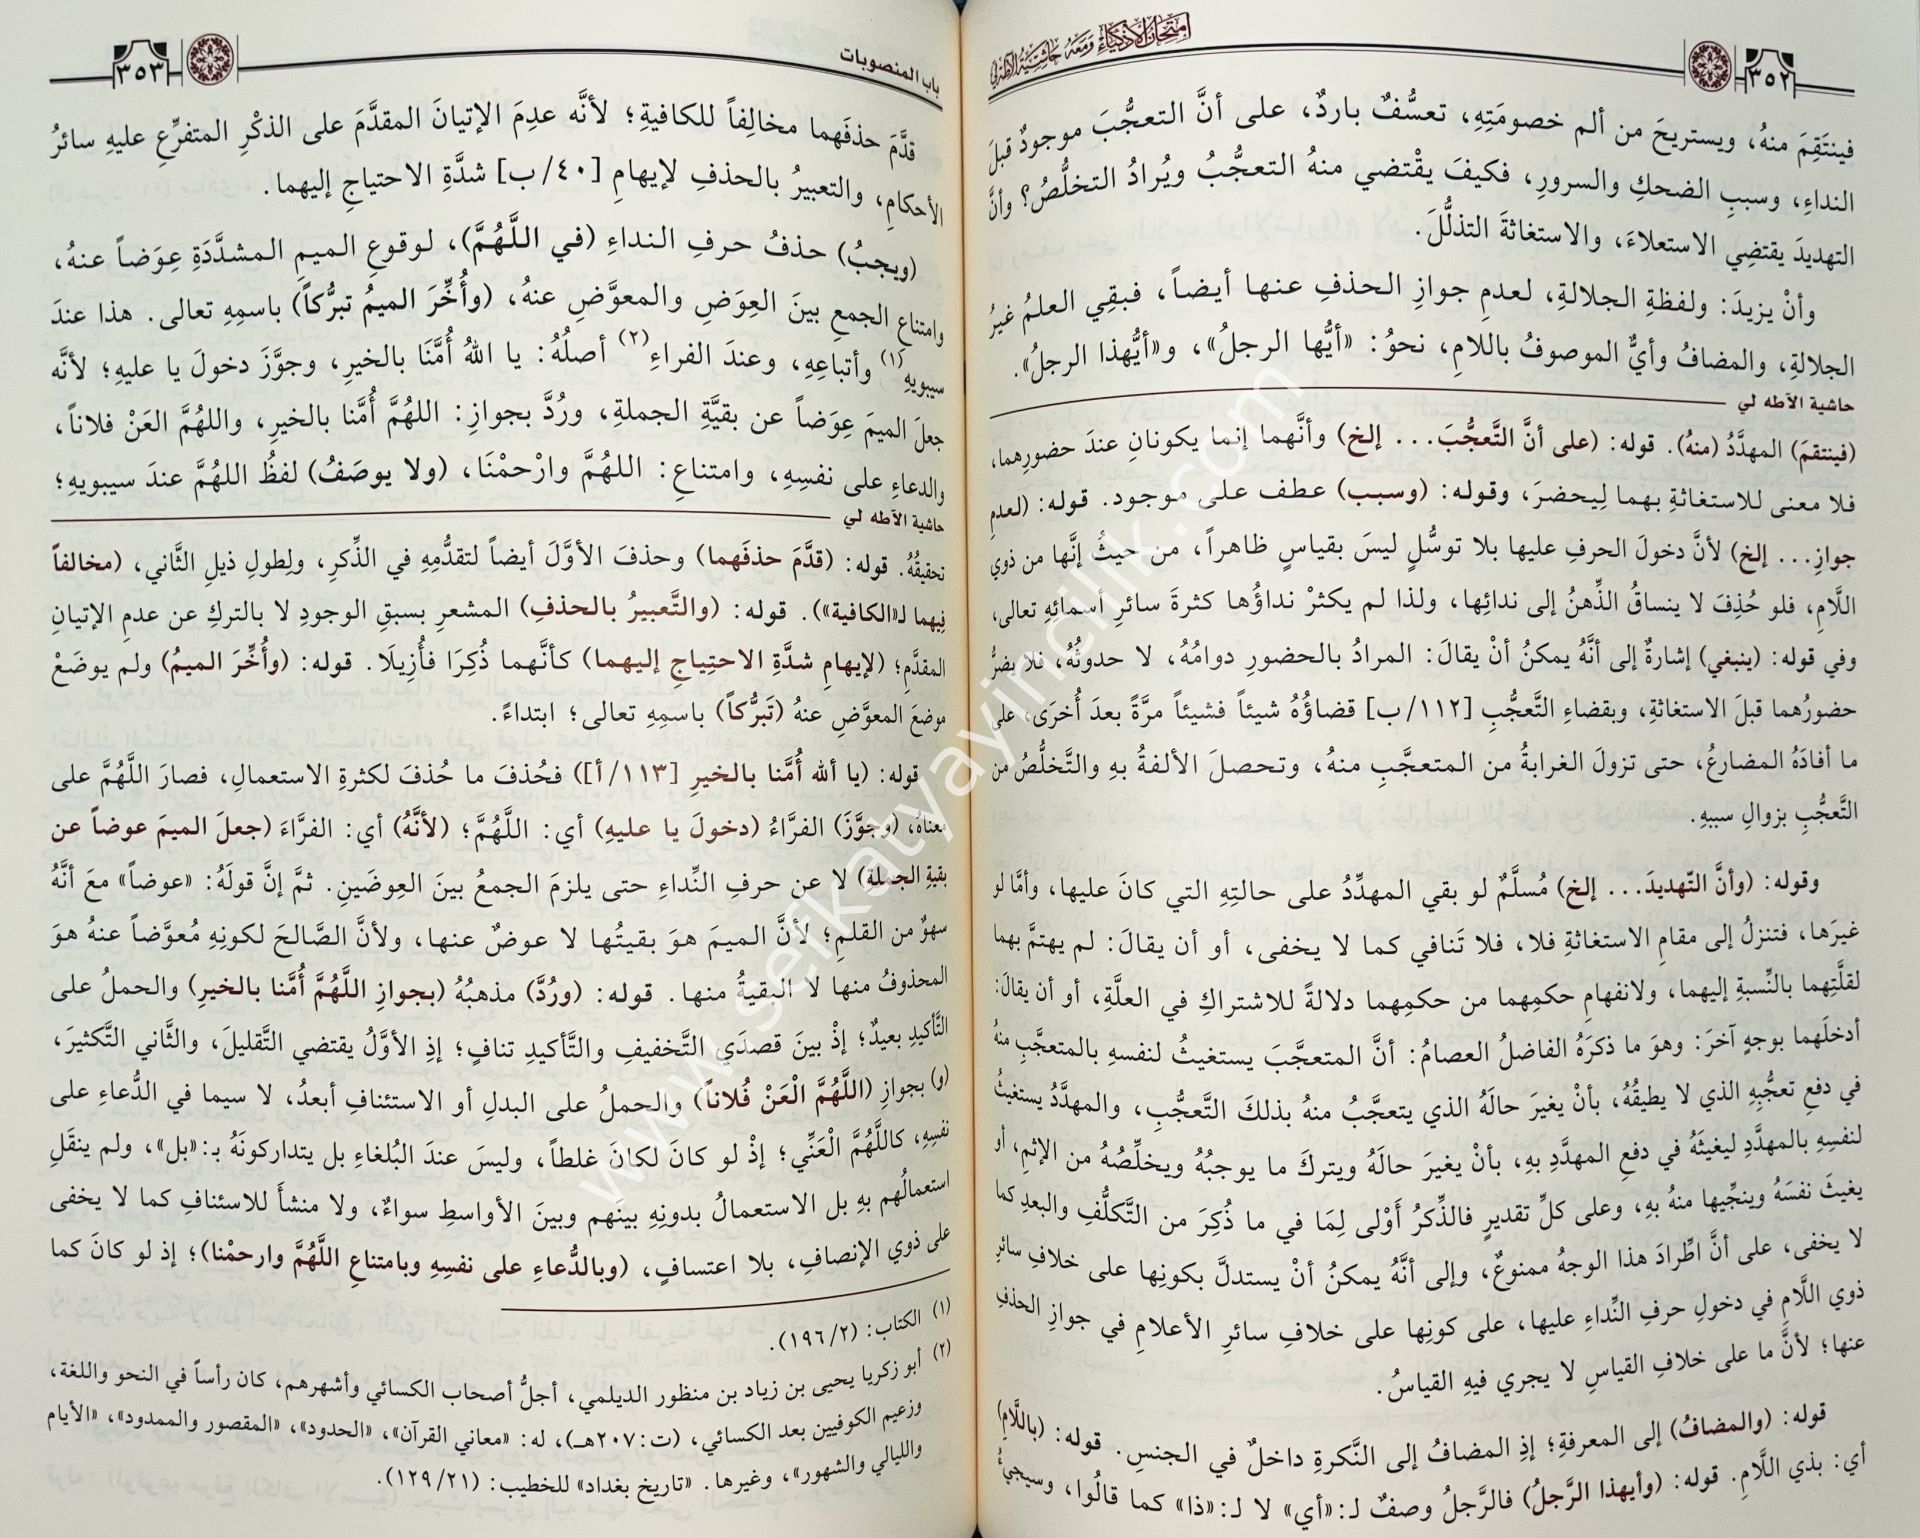 ٣٥٢
امتحان الأذكياء ومعه حاشية الأطه لي
فينتَقِمَ منهُ، ويستريحَ من ألم خصومَتِهِ، تعسُّفٌ باردٌ، على أنَّ التعجُّبَ موجودٌ قبلَ
النداءِ، وسببِ الضحكِ والسرورِ، فكيفَ يقْتضي منهُ التعجُّبُ ويُرادُ التخلُّصُ؟ وأنَّ
التهديدَ يقتضِي الاستعلاءَ، والاستغاثةَ التذلُّلَ.
وأنْ يزيدَ: ولفظةِ الجلالةِ، لعدمِ جوازِ الحذفِ عنها أيضاً، فبقِي العلمُ غيرُ
الجلالةِ، والمضافُ وأيٌّ الموصوفُ باللامِ، نحوُ: «أيُّها الرجلُ»، و«أيُّهذا الرجلُ».
حاشية الآطه لي
(فينتقمَ) المهدَّدُ (منهُ). قوله: (على أنَّ التَّعجُّبَ... إلخ) وأنَّهما إنما يكونانِ عندَ حضورِهما،
فلا معنى للاستغاثةِ بهما لِيحضرَ، وقوله: (وسبب) عطف على موجود. قوله: (لعدمِ
جوازِ... إلخ) لأنَّ دخولَ الحرفِ عليها بلا توسُّلٍ ليسَ بقياسٍ ظاهراً، من حيثُ إنَّها من ذوي
اللَّامِ، فلو حُذِفَ لا ينساقُ الذِّهنُ إلى ندائِها، ولذا لم يكثرْ نداؤُها كثرةَ سائرِ أسمائِهِ تعالى،
وفي قوله: (ينبغي) إشارةٌ إلى أنَّهُ يمكنُ أنْ يقالَ: المرادُ بالحضورِ دوامُهُ، لا حدوثُهُ، فلا يضرُّ
حضورُهما قبلَ الاستغاثةِ، وبقضاءِ التَّعجُّبِ [١١٢/ب] قضاؤُهُ شيئاً فشيئاً مرَّةً بعدَ أُخرَى، على
ما أفادَهُ المضارعُ، حتى تزولَ الغرابةُ من المتعجَّبِ منهُ، وتحصلَ الألفةُ بهِ والتَّخلُّصُ من
التَّعجُّبِ بزوالِ سببِهِ.
وقوله: (وأنَّ التّهديدَ... إلخ) مُسلَّمٌ لو بقي المهدِّدُ على حالتِهِ التي كانَ عليها، وأمَّا لو
غيرَها، فتنزلُ إلى مقامِ الاستغاثةِ فلا، فلا تَنافي كما لا يخفى، أو أن يقالَ: لم يهتمَّ بهما
لقلَّتِهما بالنِّسبةِ إليهما، ولانفهامِ حكمِهما من حكمِهما دلالةً للاشتراكِ في العلَّةِ، أو أن يقالَ:
أدخلَهما بوجهٍ آخرَ: وهوَ ما ذكرَهُ الفاضلُ العصامُ: أنَّ المتعجَّبَ يستغيثُ لنفسِهِ بالمتعجَّبِ منهُ
في دفعِ تعجُّبِهِ الذي لا يطيقُهُ، بأنْ يغيرَ حالَهُ الذي يتعجَّبُ منهُ بذلكَ التَّعجُّبِ، والمهدَّدُ يستغيثُ
لنفسِهِ بالمهدَّدِ ليغيثَهُ في دفعِ المهدَّدِ بهِ، بأنْ يغيرَ حالَهُ ويتركَ ما يوجبُهُ ويخلِّصُهُ من الإثمِ، أو
يغيثَ نفسَهُ وينجِّيها منهُ بهِ، وعلى كلِّ تقديرٍ فالذِّكرُ أَوْلى لِمَا في ما ذُكِرَ من التَّكلُّفِ والبعدِ كما
لا يخفى، على أنَّ اطِّرادَ هذا الوجهِ ممنوعٌ، وإلى أنَّهُ يمكنُ أنْ يستدلَّ بكونِها على خلافِ سائرِ
ذوي اللَّامِ في دخولِ حرفِ النِّداءِ عليها، على كونِها على خلافِ سائرِ الأعلامِ في جوازِ الحذفِ
عنها؛ لأنَّ ما على خلافِ القياسِ لا يجري فيهِ القياسُ.
قوله: (والمضافُ) إلى المعرفةِ؛ إذِ المضافُ إلى النَّكرةِ داخلٌ في الجنسِ. قوله: (باللَّامِ)
أي: بذي اللَّامِ. قوله: (وأيهذا الرَّجلُ) فالرَّجلُ وصفٌ لـ: «أي» لا لـ: «ذا» كما قالُوا، وسيجيءُ
باب المنصوبات
٣٥٣
قدَّمَ حذفَهما مخالِفاً للكافيةِ؛ لأنَّه عدِمَ الإتيانَ المقدَّمَ على الذكْرِ المتفرِّعِ عليهِ سائرُ
الأحكامِ، والتعبيرُ بالحذفِ لإيهامِ [٤٠/ب] شدَّةِ الاحتياجِ إليهما.
(ويجبُ) حذفُ حرفِ النداءِ (في اللَّهُمَّ)، لوقوعِ الميمِ المشدَّدَةِ عِوَضاً عنهُ،
وامتناعِ الجمعِ بينَ العِوَضِ والمعوَّضِ عنهُ، (وأُخِّرَ الميمُ تبرُّكاً) باسمِهِ تعالى. هذا عندَ
سيبويهِ(١) وأتباعِهِ، وعندَ الفراءِ(٢) أصلُهُ: يا اللهُ أُمَّنَا بالخيرِ، وجوَّزَ دخولَ يا عليهِ؛ لأنَّه
جعلَ الميمَ عِوَضاً عن بقيَّةِ الجملةِ، ورُدَّ بجوازِ: اللهُمَّ أُمَّنا بالخيرِ، واللهُمَّ العَنْ فلاناً،
والدعاءِ على نفسِهِ، وامتناعِ: اللهُمَّ وارْحمْنَا، (ولا يوصَفُ) لفظُ اللهُمَّ عندَ سيبويهِ؛
حاشية الآطه لي
تحقيقُهُ. قوله: (قدَّمَ حذفَهما) وحذفَ الأوَّلَ أيضاً لتقدُّمِهِ في الذِّكرِ، ولِطولِ ذيلِ الثَّاني، (مخالفاً
فِيهما لـ«الكافية»). قوله: (والتَّعبيرُ بالحذفِ) المشعرِ بسبقِ الوجودِ لا بالتركِ عن عدمِ الإتيانِ
المقدَّمِ؛ (لإيهامِ شدَّةِ الاحتِياجِ إليهما) كأنَّهما ذُكِرَا فأُزِيلَا. قوله: (وأُخِّرَ الميمُ) ولم يوضَعْ
موضعَ المعوَّضِ عنهُ (تَبرُّكاً) باسمِهِ تعالى؛ ابتداءً.
قوله: (يا ألله أُمَّنا بالخيرِ [١١٣/أ]) فحُذفَ ما حُذفَ لكثرةِ الاستعمالِ، فصارَ اللَّهُمَّ على
معناهُ، (وجوَّزَ) الفرَّاءُ (دخولَ يا عليهِ) أي: اللَّهُمَّ؛ (لأنَّهُ) أي: الفرَّاءَ (جعلَ الميمَ عوضاً عن
بقيةِ الجملةِ) لا عن حرفِ النِّداءِ حتى يلزمَ الجمعُ بينَ العِوضَينِ. ثمَّ إنَّ قولَهُ: «عوضاً» معَ أنَّهُ
سهوٌ من القلمِ؛ لأنَّ الميمَ هوَ بقيتُها لا عوضٌ عنها، ولأنَّ الصَّالحَ لكونِهِ مُعوَّضاً عنهُ هوَ
المحذوفُ منها لا البقيةُ منها. قوله: (ورُدَّ) مذهبُهُ (بجوازِ اللَّهُمَّ أُمَّنا بالخيرِ) والحملُ على
التَّأكيدِ بعيدٌ؛ إذْ بينَ قصدَي التَّخفيفِ والتَّأكيدِ تنافٍ؛ إذِ الأوَّلُ يقتضي التَّقليلَ، والثَّاني التَّكثيرَ،
(و) بجوازِ (اللَّهُمَّ الْعَنْ فُلاناً) والحملُ على البدلِ أو الاستئنافِ أبعدُ، لا سيما في الدُّعاءِ على
نفسِهِ، كاللَّهُمَّ الْعَنِّي؛ إذْ لو كانَ لكانَ غلطاً، وليسَ عندَ البُلغاءِ بل يتداركونَهُ بـ: «بل»، ولم ينقَلِ
استعمالُهم بهِ بل الاستعمالُ بدونِهِ بينَهم وبينَ الأواسطِ سواءٌ، ولا منشأَ للاسئنافِ كما لا يخفى
على ذوي الإنصافِ، بلا اعتسافٍ، (وبالدُّعاءِ على نفسِهِ وبامتناعِ اللَّهُمَّ وارحمْنا)؛ إذ لو كانَ كما
(١) الكتاب: (١٩٦/٢).
(٢) أبو زكريا يحيى بن زياد بن منظور الديلمي، أجلُّ أصحاب الكسائي وأشهرهم، كان رأساً في النحو واللغة،
وزعيم الكوفيين بعد الكسائي، (ت:٢٠٧هـ)، له: «معاني القرآن»، «الحدود»، «المقصور والممدود»، «الأيام
والليالي والشهور»، وغيرها. «تاريخ بغداد» للخطيب: (١٢٩/٢١).
www.seckatyayincilik.com